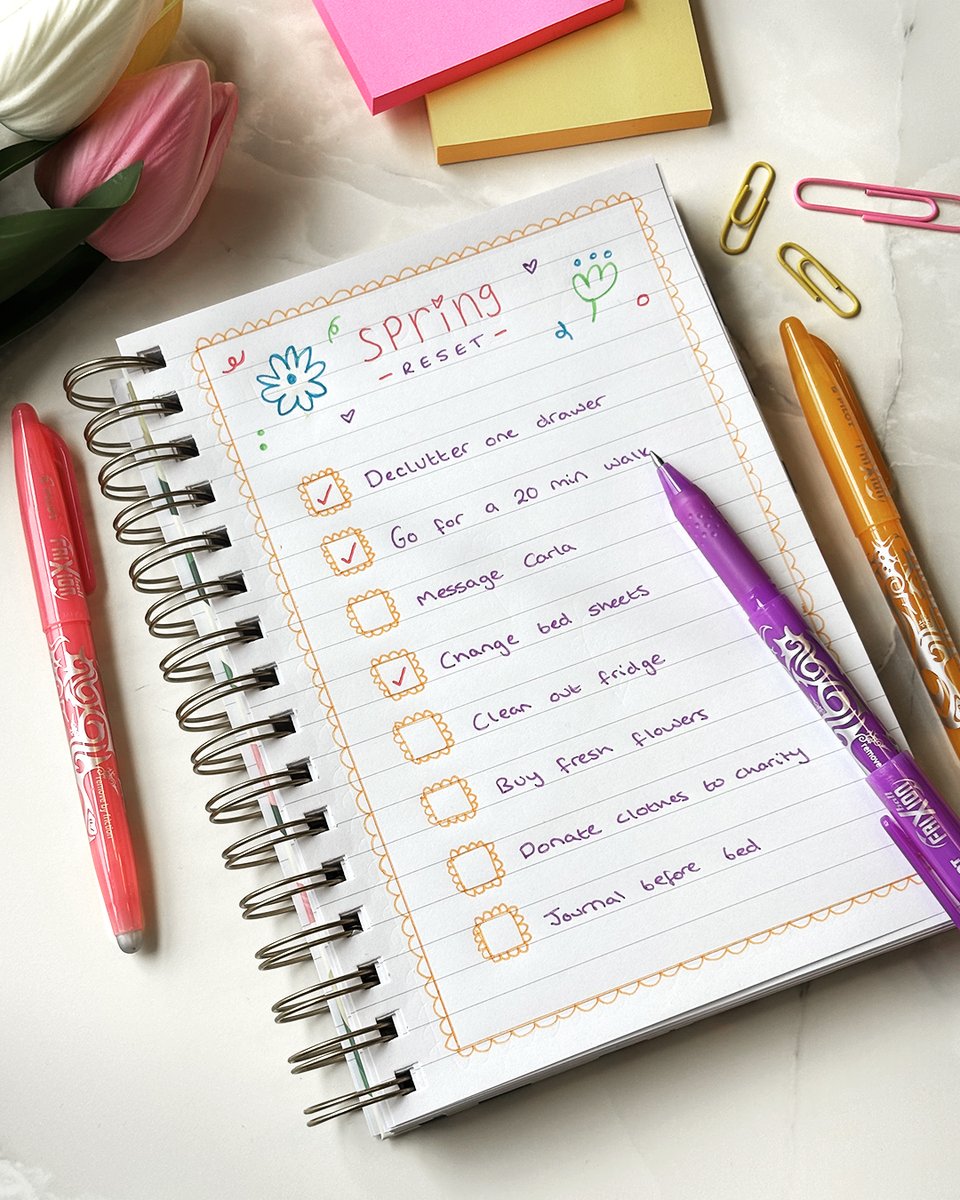 spring
- RESET -
Declutter one drawer
Go for a 20 min walk
Message Carla
Change bed sheets
Clean out fridge
Buy fresh flowers
Donate clothes to charity
Journal before bed
FRIXION
remove by friction
PILOT
FRIXION
remove
FRIXION
ball